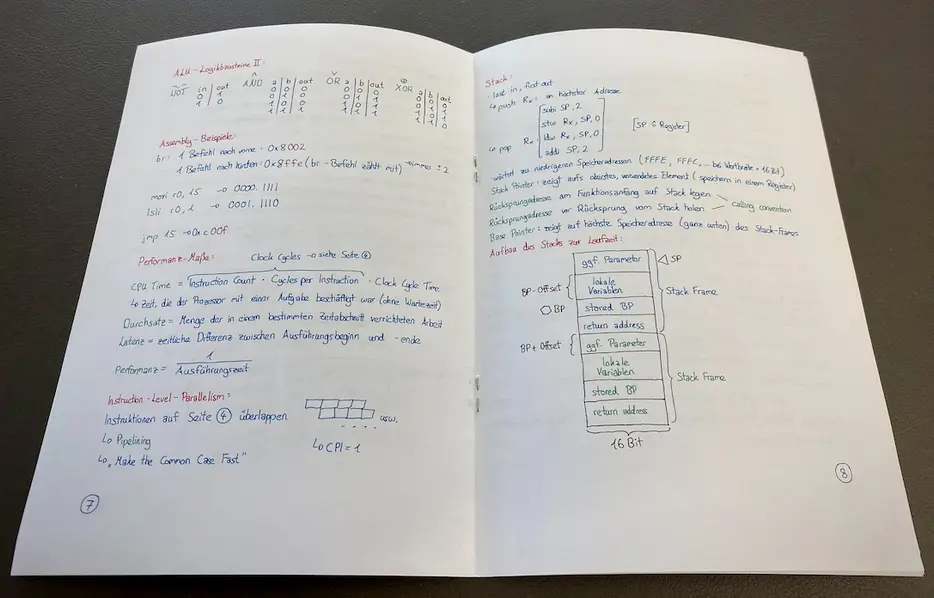 ALU-Logikbausteine II:
NOT in out
0 1
1 0
∧
AND a b out
0 0 0
0 1 0
1 0 0
1 1 1
∨
OR a b out
0 0 0
0 1 1
1 0 1
1 1 1
⊕
XOR a b out
0 0 0
0 1 1
1 0 1
1 1 0
Assembly-Beispiele:
br: 1 Befehl nach vorne: 0x8002
1 Befehl nach hinten: 0x8ffe (br-Befehl zählt mit) immer ± 2
movi r0, 15 → 0000. 1111
lsli r0, 1 → 0001. 1110
jmp 15 → 0xc00f
Performanz-Maße: Clock Cycles → siehe Seite 4
CPU Time = Instruction Count · Cycles per Instruction · Clock Cycle Time
↳ Zeit, die der Prozessor mit einer Aufgabe beschäftigt war (ohne Wartezeit)
Durchsatz = Menge der in einem bestimmten Zeitabschnitt verrichteten Arbeit
Latenz = zeitliche Differenz zwischen Ausführungsbeginn und -ende
Performanz = 1 / Ausführungszeit
Instruction-Level-Parallelism:
Instruktionen auf Seite 4 überlappen
usw.
↳ Pipelining
↳ CPI = 1
↳ „Make the Common Case Fast"
7
Stack:
· last in, first out
↳ push Rx: an höchster Adresse
subi SP, 2
stw Rx, SP, 0
[SP ≙ Register]
↳ pop Rx:
ldw Rx, SP, 0
addi SP, 2
wächst zu niedrigeren Speicheradressen (FFFE, FFFC, ... bei Wortbreite = 16 Bit)
Stack Pointer: zeigt aufs oberste, verwendete Element (speichern in einem Register)
Rücksprungadresse am Funktionsanfang auf Stack legen
Rücksprungadresse vor Rücksprung vom Stack holen
calling convention
Base Pointer: zeigt auf höchste Speicheradresse (ganz unten) des Stack-Frames
Aufbau des Stacks zur Laufzeit:
ggf. Parameter
SP
BP-Offset
lokale
Variablen
Stack Frame
BP
stored BP
return address
BP+Offset
ggf. Parameter
lokale
Variablen
Stack Frame
stored BP
return address
16 Bit
8